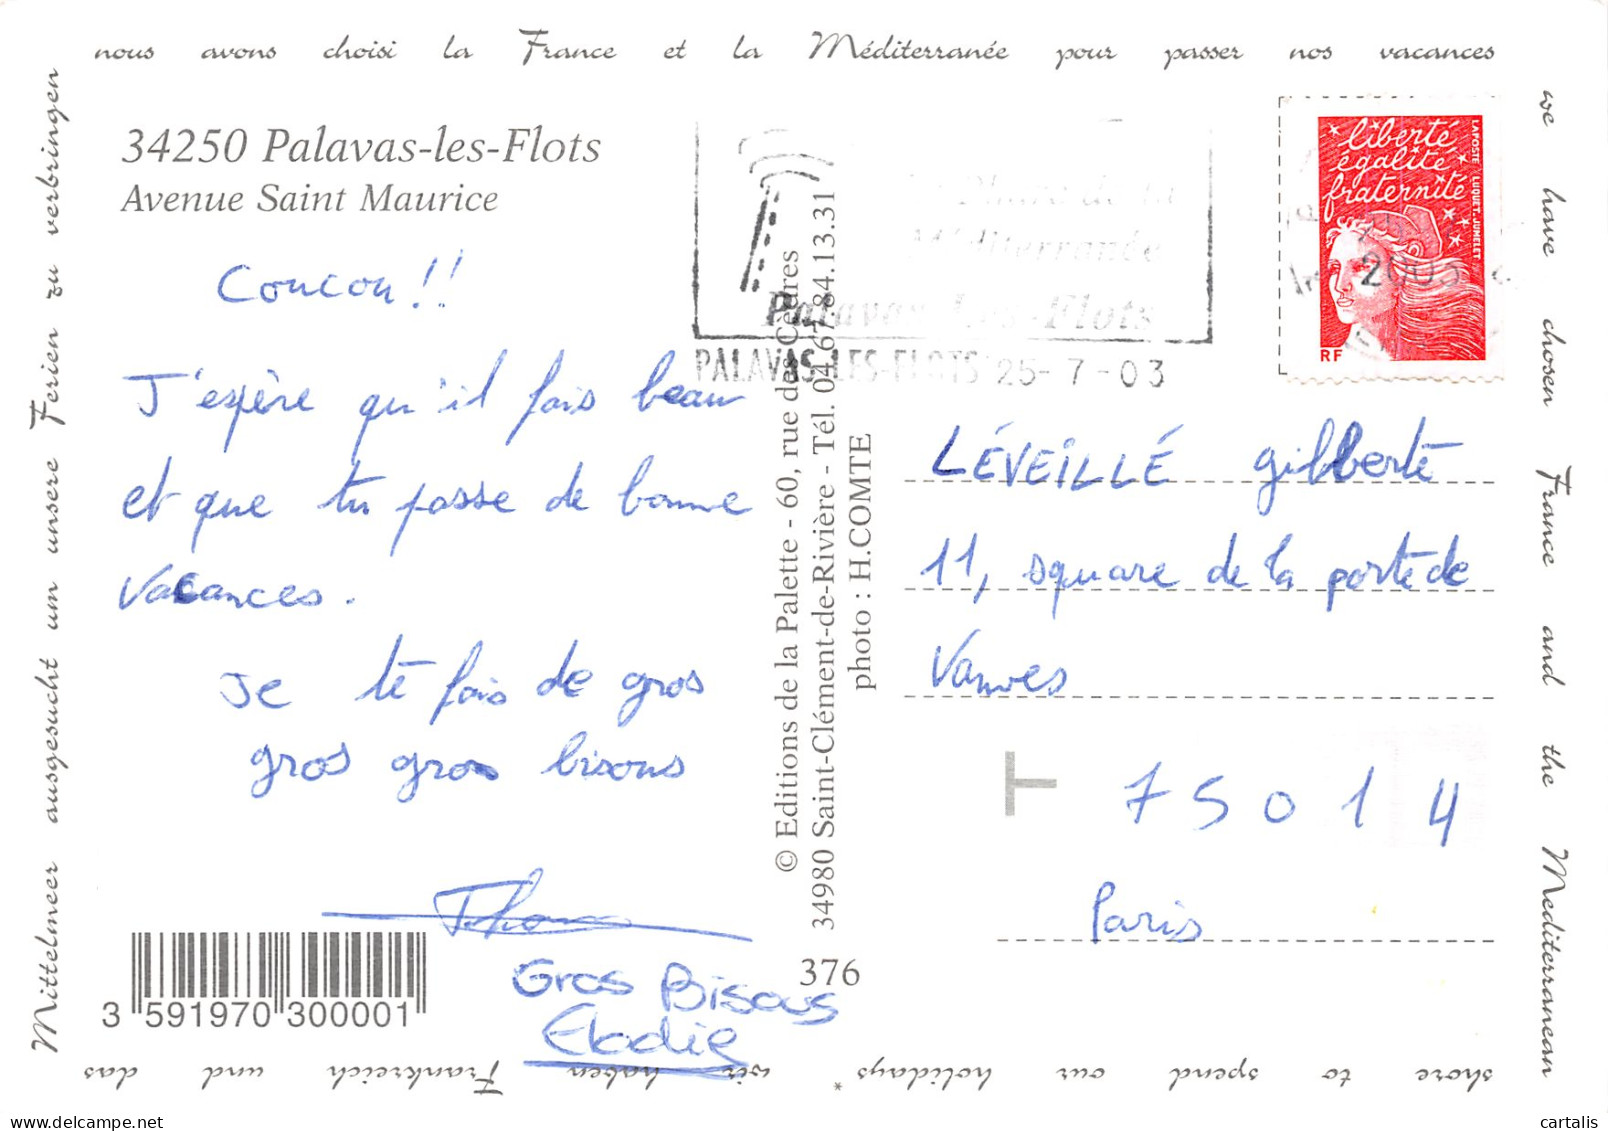 nous avons choisi la France et la Méditerranée pour passer nos vacances
we have chosen France and the Mediterranean
shore to spend our holidays * wir haben Frankreich und das
Mittelmeer ausgesucht um unsere Ferien zu verbringen
34250 Palavas-les-Flots
Avenue Saint Maurice
Coucou!!
J'espère qu'il fais beau
et que tu passe de bonne
vacances.
Je te fais de gros
gros gros bisous
Thomas
Gros Bisous
Elodie
3 591970 300001
376
© Editions de la Palette - 60, rue des Cèdres
34980 Saint-Clément-de-Rivière - Tél. 04.67.84.13.31
photo : H.COMTE
Le Phare de la
Méditerranée
Palavas-Les-Flots
PALAVAS-LES-FLOTS 25-7-03
liberté
égalité
fraternité
LAPOSTE LUQUET.JUMELET
RF
2003
LÉVEILLÉ gilberte
11, square de la porte de
Vanves
75014
Paris
cartalis
www.delcampe.net